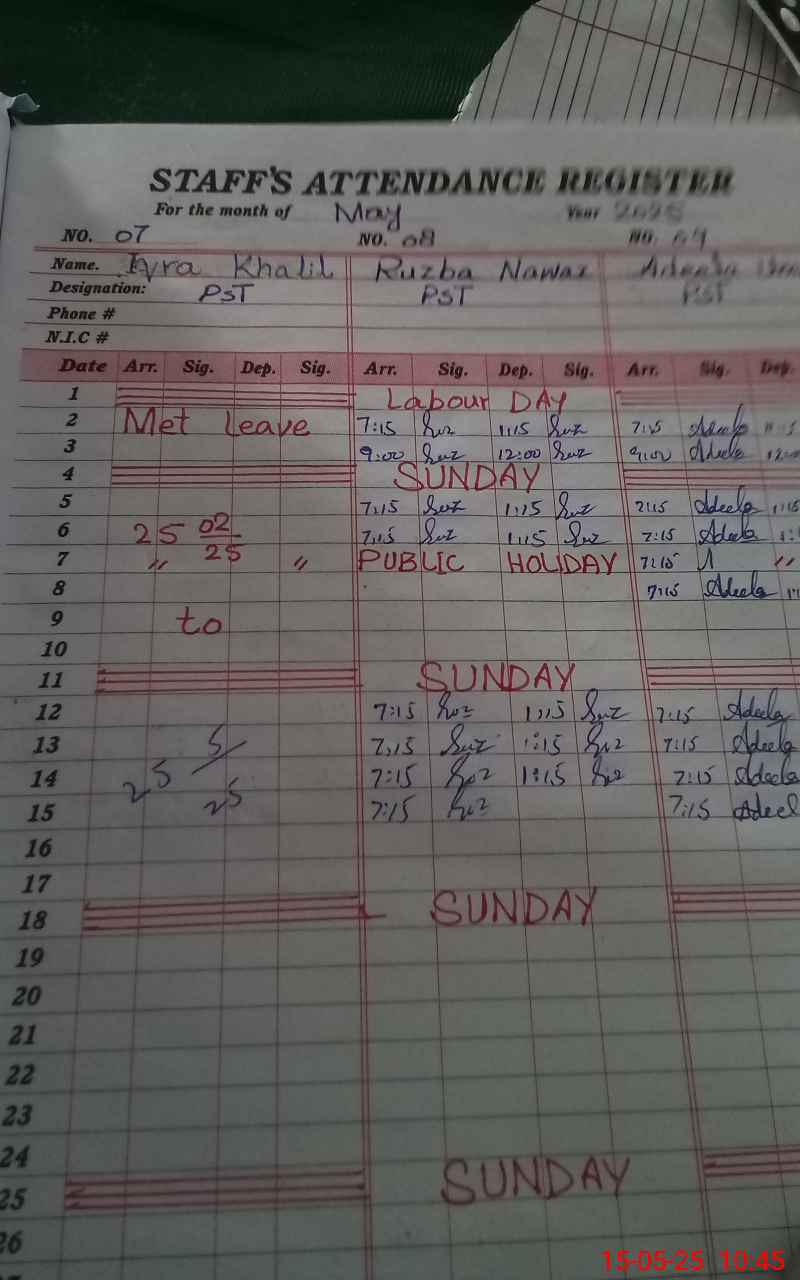 STAFF'S ATTENDANCE REGISTER
For the month of May Year 2025
NO. 07 NO. 08 NO. 09
Name. Iqra Khalil Ruzba Nawaz Adeela
Designation: PST PST PST
Phone #
N.I.C #
Date Arr. Sig. Dep. Sig. Arr. Sig. Dep. Sig. Arr. Sig. Dep.
1 Labour DAY
2 Met Leave 7:15 1:15 7:15 Adeela
3 9:00 12:00 9:00 Adeela 12:00
4 SUNDAY
5 7:15 1:15 Adeela 1:15
6 25 02/25 7:15 1:15 7:15 Adeela
7 〃 〃 PUBLIC HOLIDAY 7:15 〃
8 7:15 Adeela
9 to
10
11 SUNDAY
12 7:15 1:15 7:15 Adeela
13 5/ 7:15 1:15 7:15 Adeela
14 25 7:15 1:15 7:15 Adeela
15 25 7:15 7:15 Adeel
16
17
18 SUNDAY
19
20
21
22
23
24
25 SUNDAY
26
15-05-25 10:45